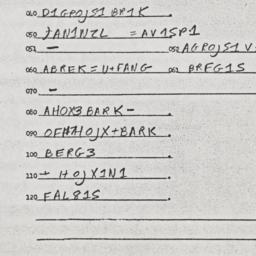 040 D1GPOJS1 BP1K.
050 ZAN1NZL = AV1SP1
051 — 052 AGPOJS1 V
060 ABREK = U+FANG 061 BRFG1S
070 —
080 AHOX3 BARK-.
090 BARK.
100 BERG3.
110 + HOJX1N1.
120 FAL81S.